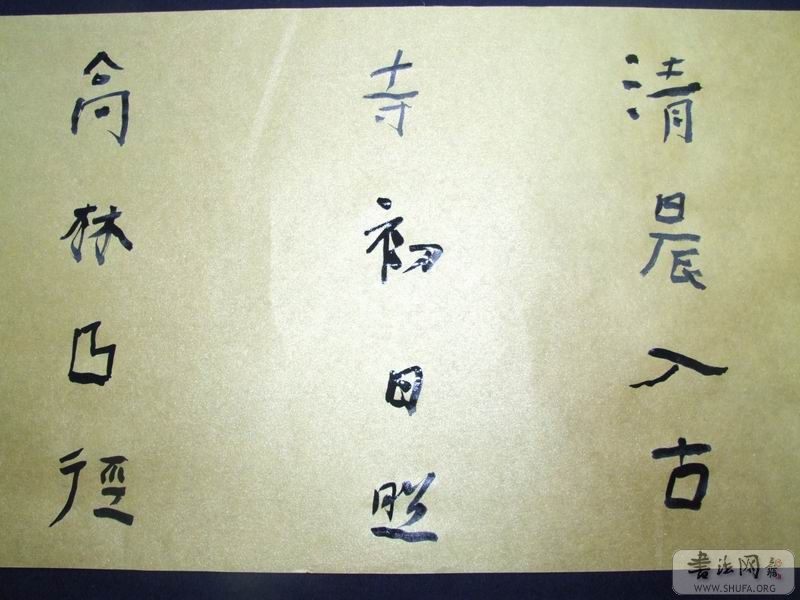 清晨入古
寺初日照
高林曲徑
書法网
WWW.SHUFA.ORG